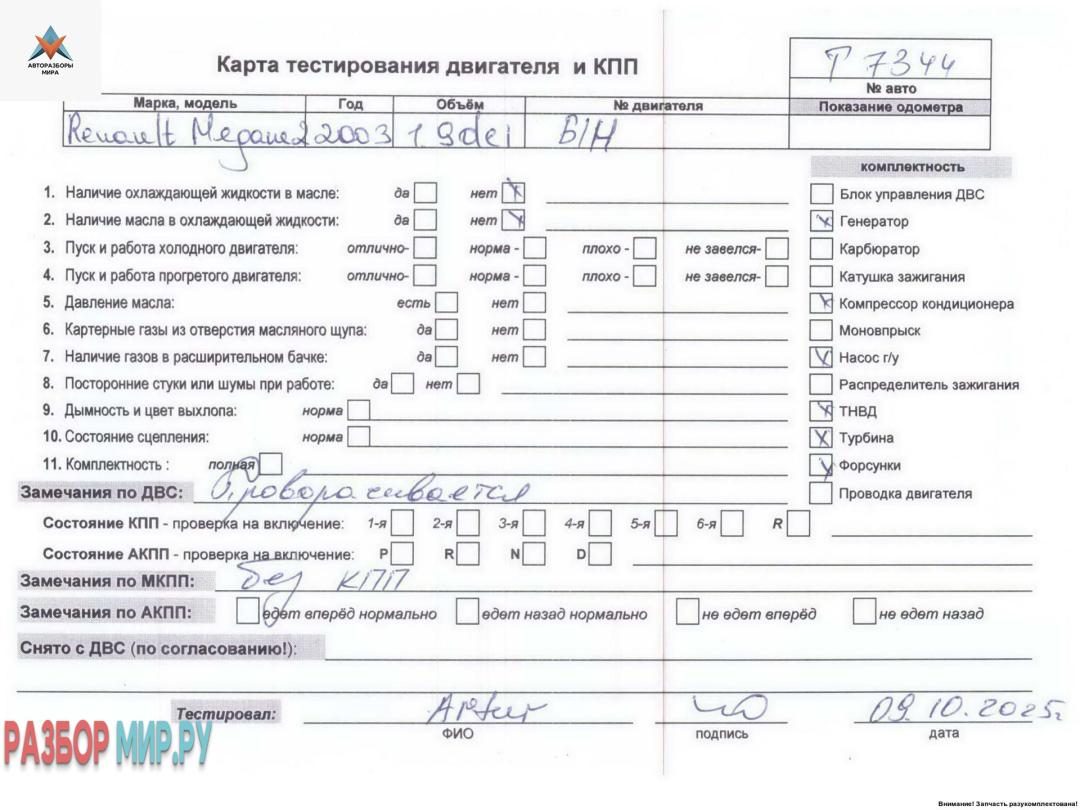 АВТОРАЗБОРЫ
МИРА
Карта тестирования двигателя и КПП
Т 7344
№ авто
Марка, модель Год Объём № двигателя Показание одометра
Renault Megane2 2003 1.9dci Б/Н
комплектность
1. Наличие охлаждающей жидкости в масле: да нет Блок управления ДВС
2. Наличие масла в охлаждающей жидкости: да нет Генератор
3. Пуск и работа холодного двигателя: отлично- норма - плохо - не завелся- Карбюратор
4. Пуск и работа прогретого двигателя: отлично- норма - плохо - не завелся- Катушка зажигания
5. Давление масла: есть нет Компрессор кондиционера
6. Картерные газы из отверстия масляного щупа: да нет Моновпрыск
7. Наличие газов в расширительном бачке: да нет Насос г/у
8. Посторонние стуки или шумы при работе: да нет Распределитель зажигания
9. Дымность и цвет выхлопа: норма ТНВД
10. Состояние сцепления: норма Турбина
11. Комплектность : полная Форсунки
Замечания по ДВС: Проворачивается Проводка двигателя
Состояние КПП - проверка на включение: 1-я 2-я 3-я 4-я 5-я 6-я R
Состояние АКПП - проверка на включение: P R N D
Замечания по МКПП: без КПП
Замечания по АКПП: едет вперёд нормально едет назад нормально не едет вперёд не едет назад
Снято с ДВС (по согласованию!):
Тестировал: Artur 09.10.2025г
ФИО подпись дата
РАЗБОРМИР.РУ
Внимание! Запчасть разукомплектована!